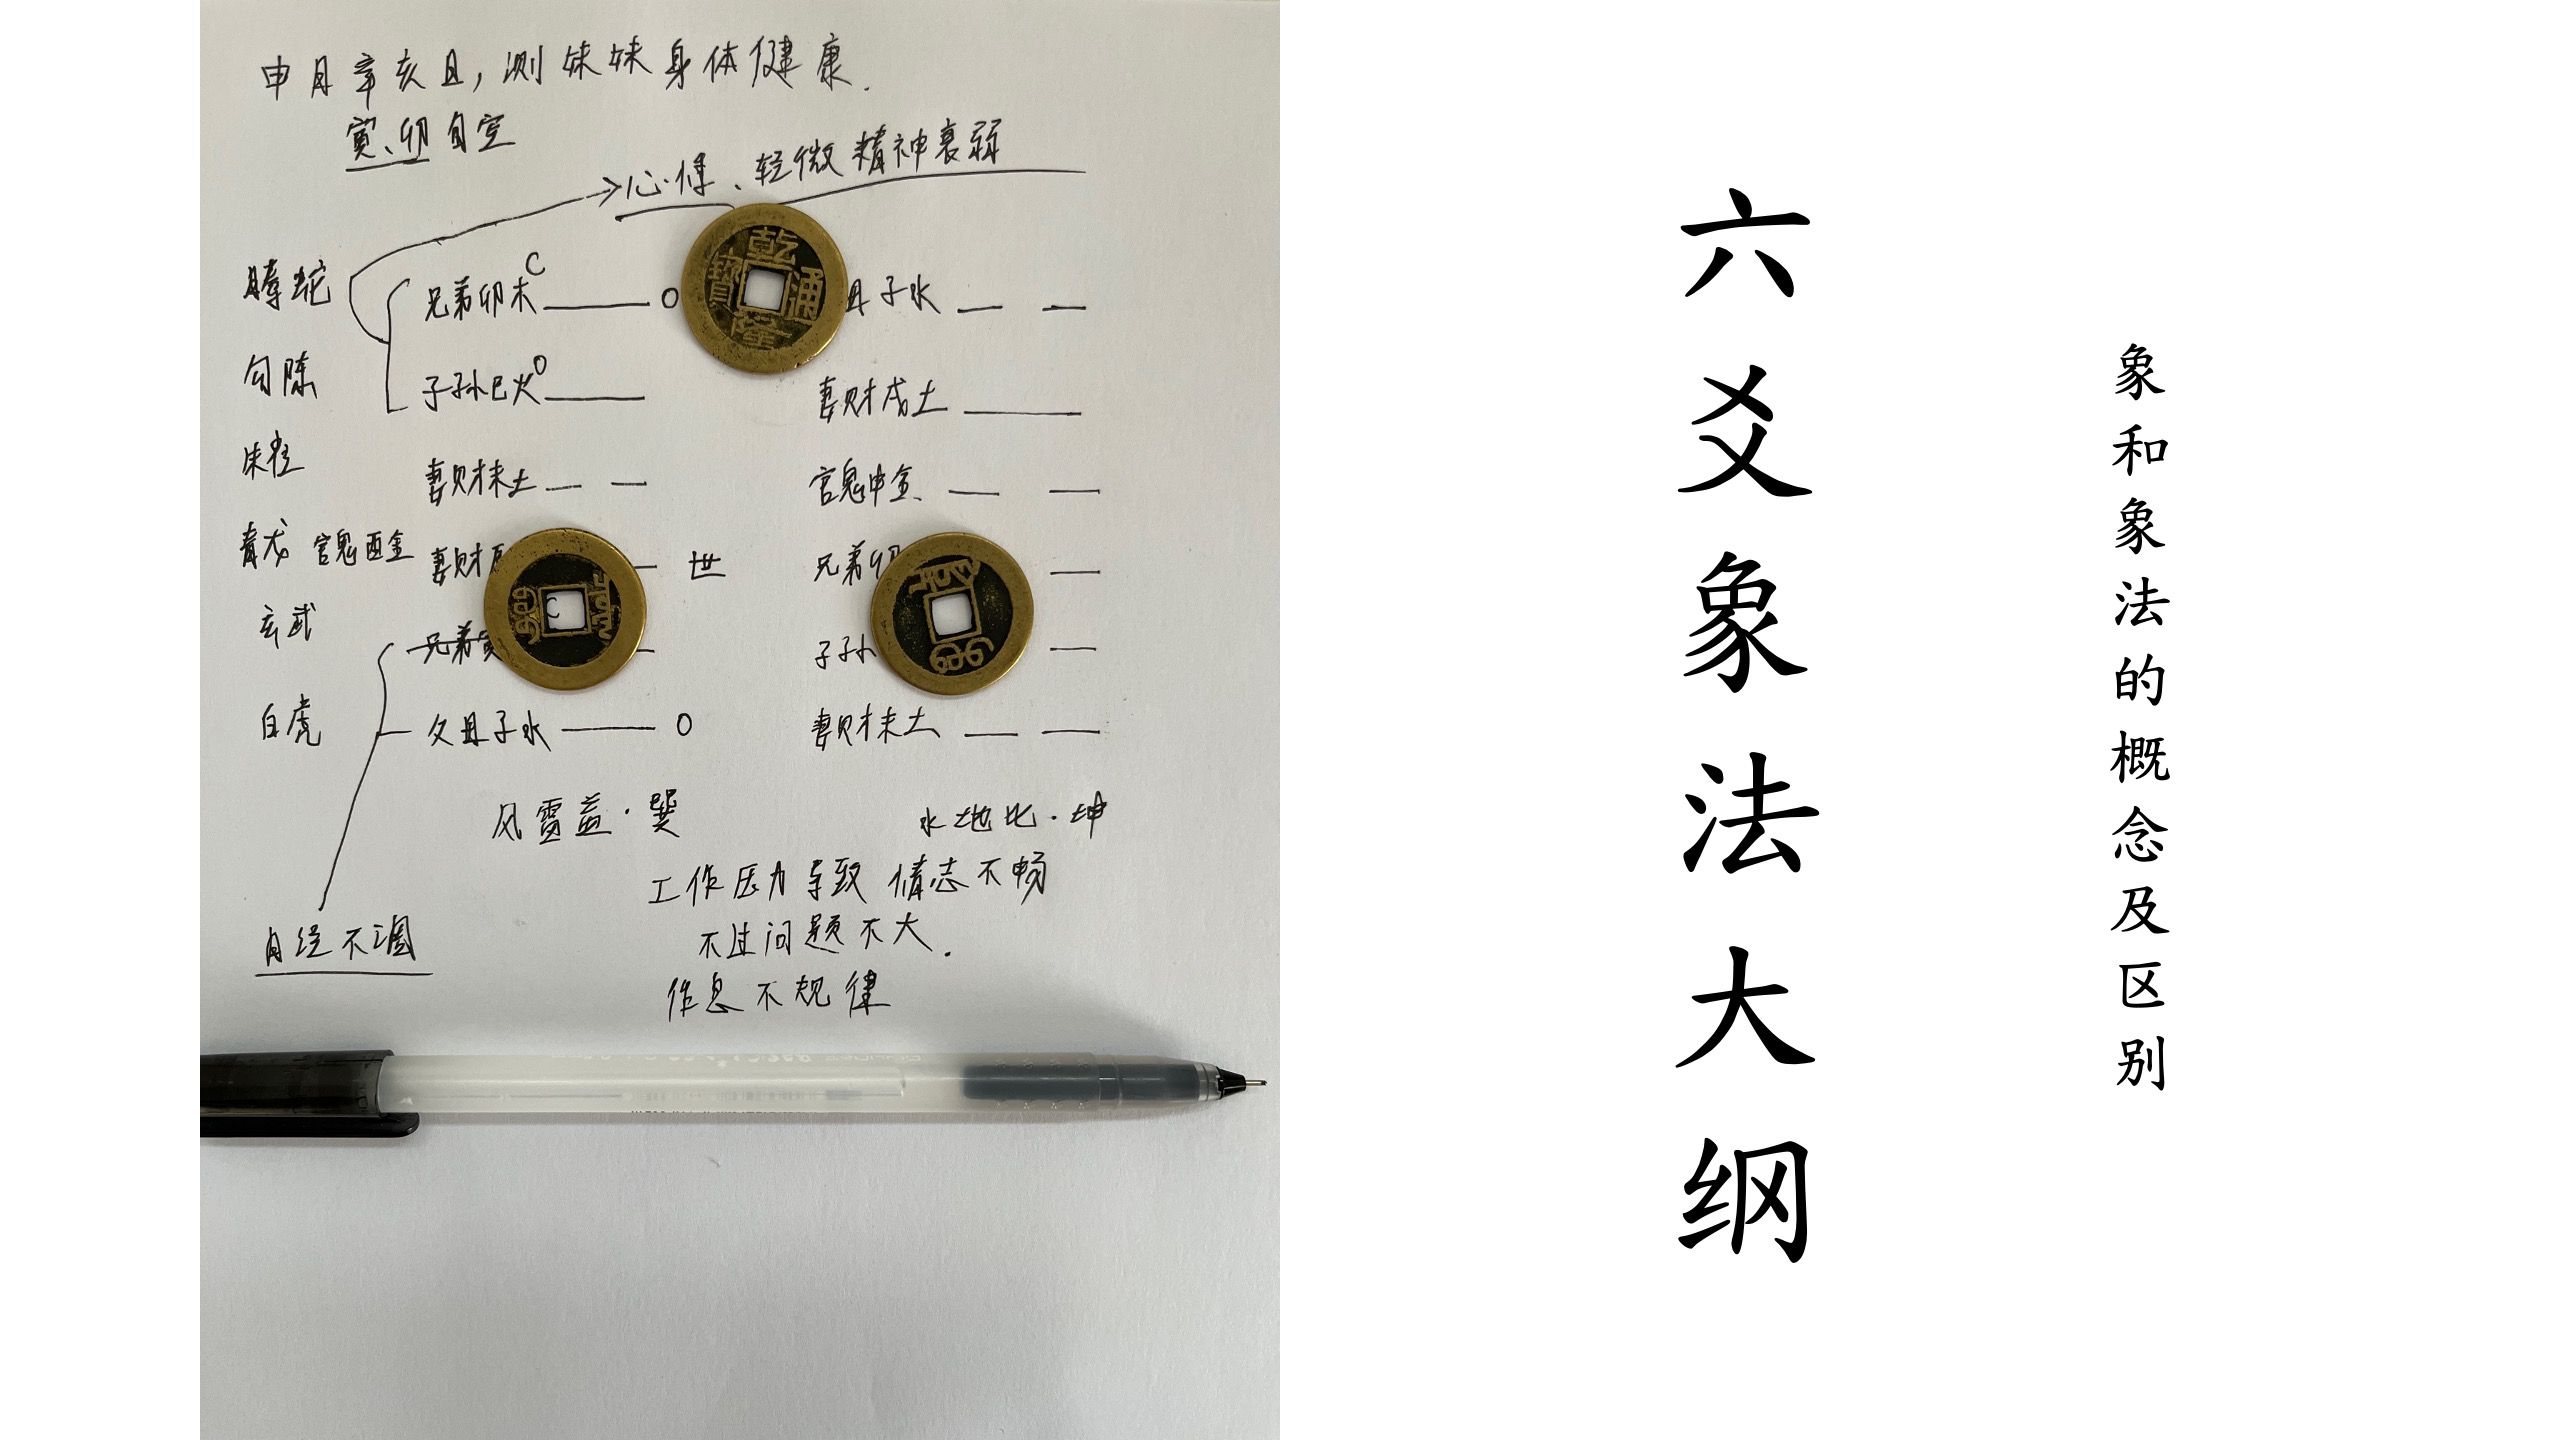 申月辛亥日,测妹妹身体健康.
寅、卯旬空
心悸、轻微精神衰弱
螣蛇 兄弟卯木 C O 母子水
勾陈 子孙巳火 O 妻财戌土
朱雀 妻财未土 官鬼申金
青龙 官鬼酉金 妻财 世 兄弟卯
玄武 兄弟寅 C 子孙
白虎 父母子水 O 妻财未土
风雷益·巽 水地比·坤
工作压力导致情志不畅
月经不调
不过问题不大.
作息不规律
乾隆通寳
六爻象法大纲
象和象法的概念及区别